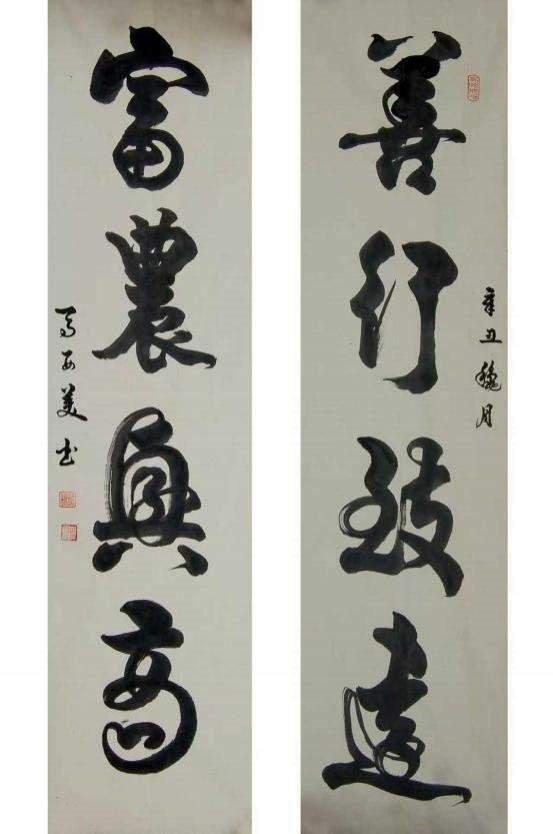 善行致遠
辛丑穐月
富農興商
美書